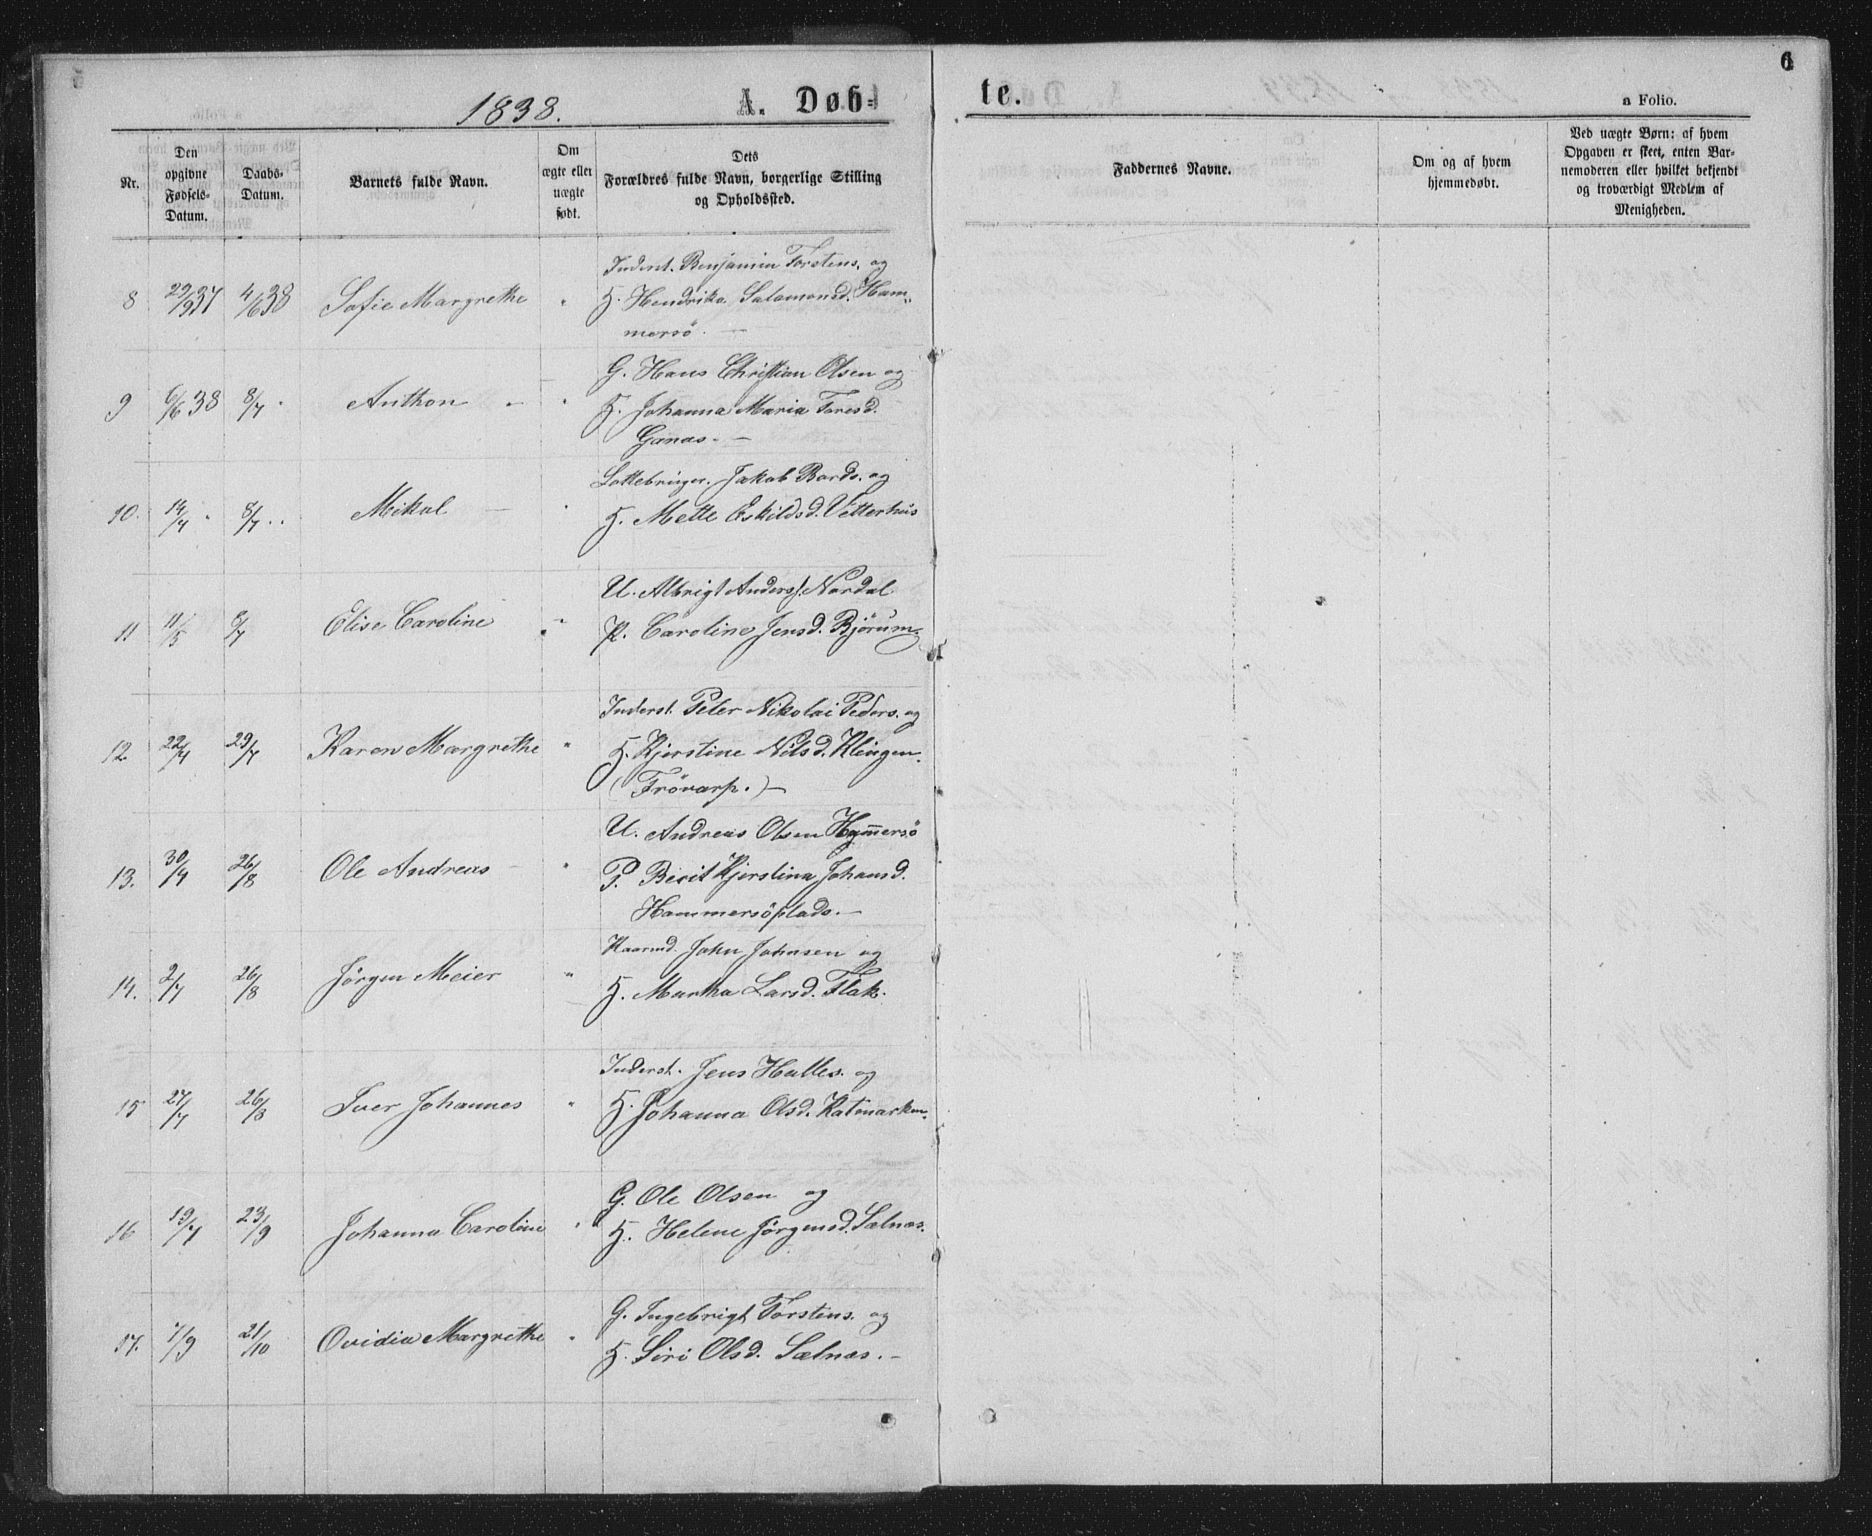 1838.
A. Døb-
te.
6
a Folio.
Nr.
Den opgivne Fødsels-Datum.
Daabs-Datum.
Barnets fulde Navn.
Om ægte eller uægte født.
Dets Forældres fulde Navn, borgerlige Stilling og Opholdssted.
Faddernes Navne.
Om og af hvem hjemmedøbt.
Ved uægte Børn: af hvem Opgaven er skeet, enten Barnemoderen eller hvilket bekjendt og troværdigt Medlem af Menigheden.
Inderst. Benjamin Torstens. og
8 29/9 37 4/6 38 Sofie Margrethe " H. Hendrika Salamonsd. Ham-
mersö. —
G. Hans Christian Olsen og
9 6/6 38 8/7 . Anthon - " H. Johanna Maria Toresd.
Ganas. —
Lottebringer. Jakob Bards. og
10. 14/4 . 8/7 .. Mikal — " H. Mette Eskildsd. Vetterhus
U. Albrigt Anders. Nordal
11 11/5 8/7 Elise Caroline " P. Caroline Jensd. Bjørum.
Inderst. Peter Nikolai Peders. og
12. 22/4 29/7 Karen Margrethe " H. Kjerstine Nilsd. Klingen.
(Frövarp.) —
U. Andreas Olsen Hammersö
13. 30/4 26/8 Ole Andreas " P. Berit Kjerstina Johansd.
Hammersöplads. —
Kaarmd. John Johnsen og
14. 2/7 26/8 Jörgen Meier " H. Martha Larsd. Flak.
Inderst. Jens Halles. og
15 27/7 26/8 Iver Johannes " H. Johanna Olsd. Ratmarken.
G. Ole Olsen og
16 19/7 23/9 Johanna Caroline " H. Helene Jörgensd. Sælnæs.
G. Ingebrigt Torstens. og
17. 7/9 21/10 Ovidia Margrethe " H. Siri Olsd. Sælnæs. —